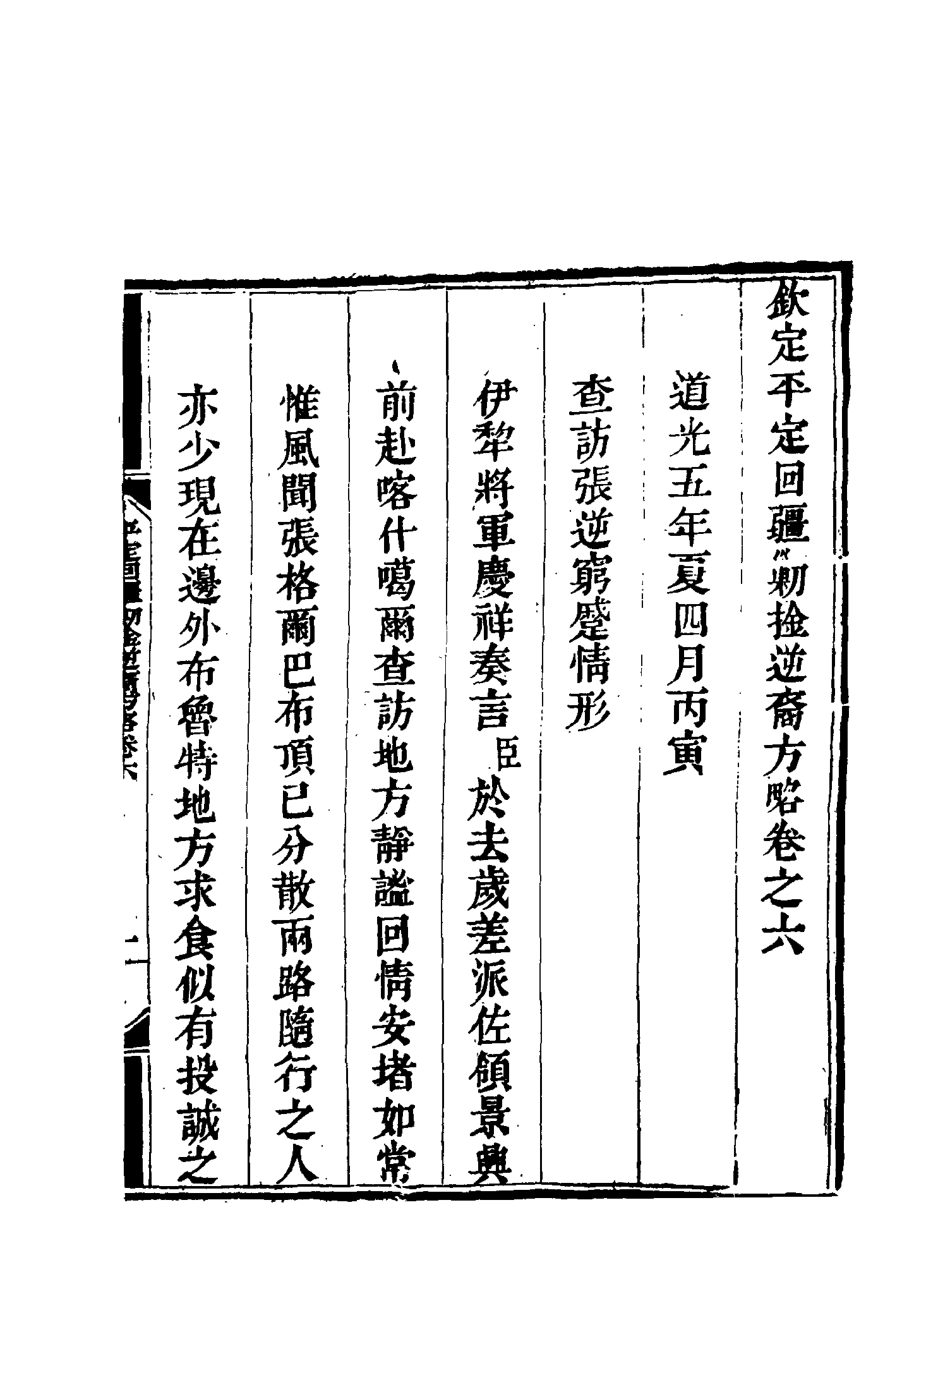 欽定平定回疆剿捦逆裔方略卷之六
道光五年夏四月丙寅
查訪張逆窮蹙情形
伊犂將軍慶祥奏言臣於去歲差派佐領景興
前赴喀什噶爾查訪地方靜謐回情安堵如常
惟風聞張格爾巴布頂已分散兩路隨行之人
亦少現在邊外布魯特地方求食似有投誠之